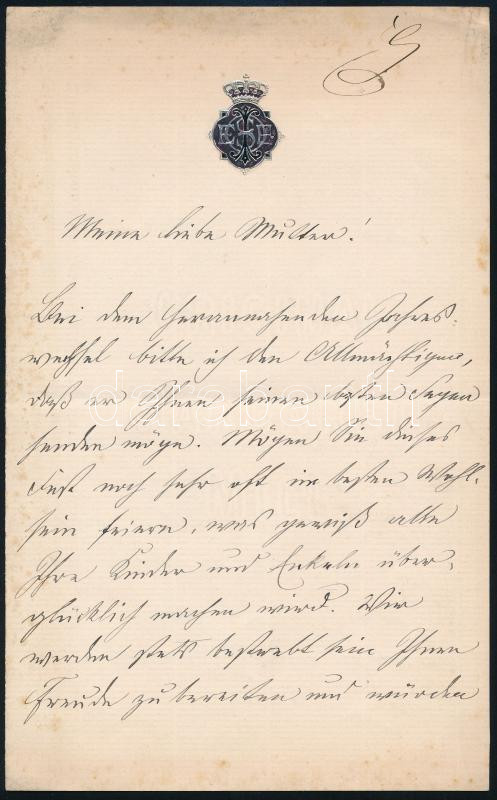 Meine liebe Mutter!
Bei dem herannahenden Jahres-
wechsel bitte ich den Allmächtigen,
daß er Ihnen seinen besten Segen
senden möge. Mögen Sie dieses
Fest noch sehr oft im besten Wohl-
sein feiern, was gewiß alle
Ihre Kinder und Enkeln über-
glücklich machen wird. Wir
werden stets bestrebt sein Ihnen
Freude zu bereiten und würden